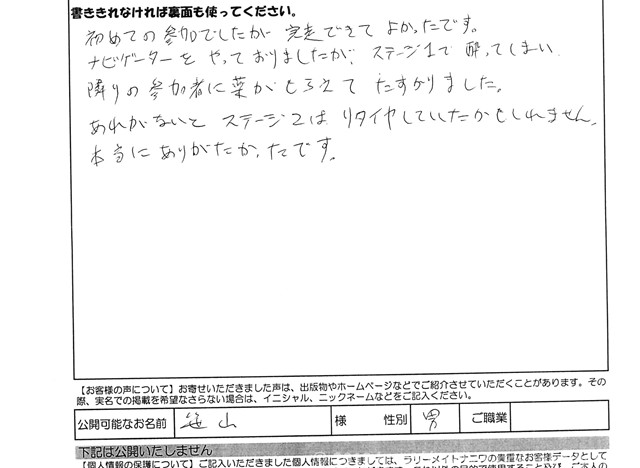 書ききれなければ裏面も使ってください。
初めての参加でしたが 完走できて よかったです。
ナビゲーターを やっておりましたが、ステージ1で 酔ってしまい
隣りの参加者に薬がもらえて たすかりました。
あれがないと ステージ2は リタイヤしていたかもしれません。
本当に ありがたかったです。
【お客様の声について】お寄せいただきました声は、出版物やホームページなどでご紹介させていただくことがあります。その
際、実名での掲載を希望なさらない場合は、イニシャル、ニックネームなどをご記入ください。
公開可能なお名前 笹山 様 性別 男 ご職業
下記は公開いたしません
【個人情報の保護について】ご記入いただきました個人情報につきましては、ラリーメイトナニワの貴重なお客様データとして